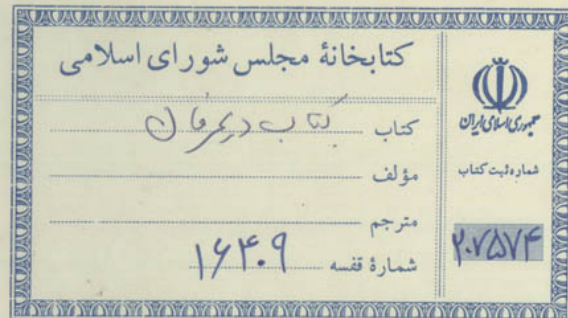 کتابخانهٔ مجلس شورای اسلامی
کتاب کتاب در عرفان
مؤلف
مترجم
شمارهٔ قفسه ۱۶۴۰۹
جمهوری اسلامی ایران
شماره ثبت کتاب
۲۰۷۵۷۴